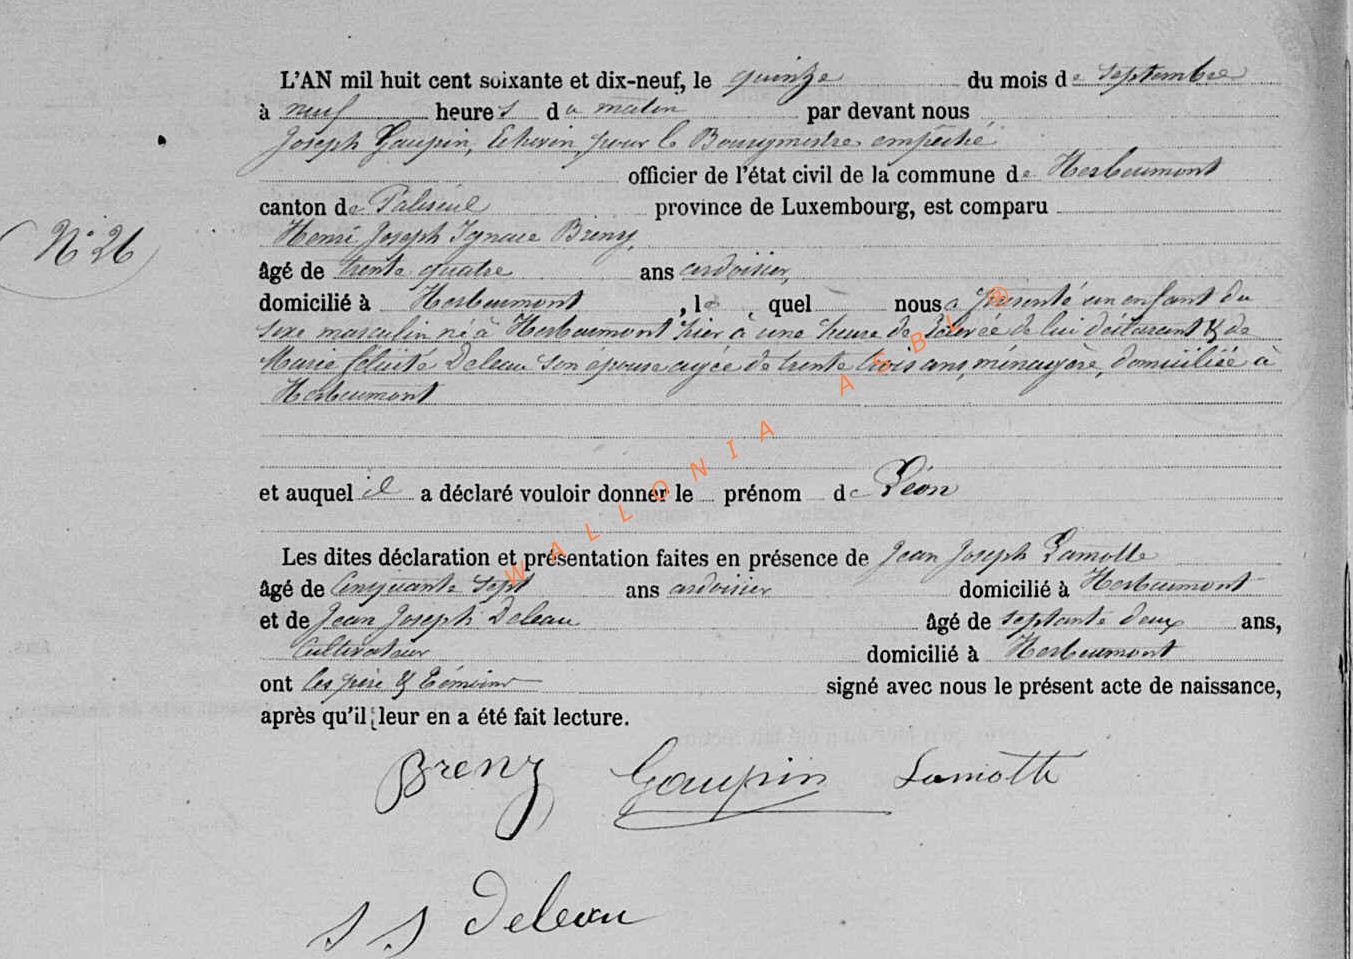 L'AN mil huit cent soixante et dix-neuf, le quinze du mois de septembre
à neuf heures du matin par devant nous
Joseph Gaupin, Echevin, pour le Bourgmestre empêché
officier de l'état civil de la commune de Herbeumont
canton de Paliseul province de Luxembourg, est comparu
N° 26
Henri Joseph Ignace Breny,
âgé de trente quatre ans ardoisier,
domicilié à Herbeumont, le quel nous a présenté un enfant du
sexe masculin né à Herbeumont hier à une heure de relevée de lui déclarant & de
Marie félicité Deleau son épouse agée de trente trois ans, ménagère, domiciliée à
Herbeumont
et auquel il a déclaré vouloir donner le prénom de Léon
Les dites déclaration et présentation faites en présence de Jean Joseph Lamotte
âgé de Cinquante sept ans ardoisier domicilié à Herbeumont
et de Jean Joseph Deleau âgé de septante deux ans,
Cultivateur domicilié à Herbeumont
ont les père & témoins signé avec nous le présent acte de naissance,
après qu'il leur en a été fait lecture.
Breny Gaupin Lamotte
J J Deleau
WALLONIA ASBL ®